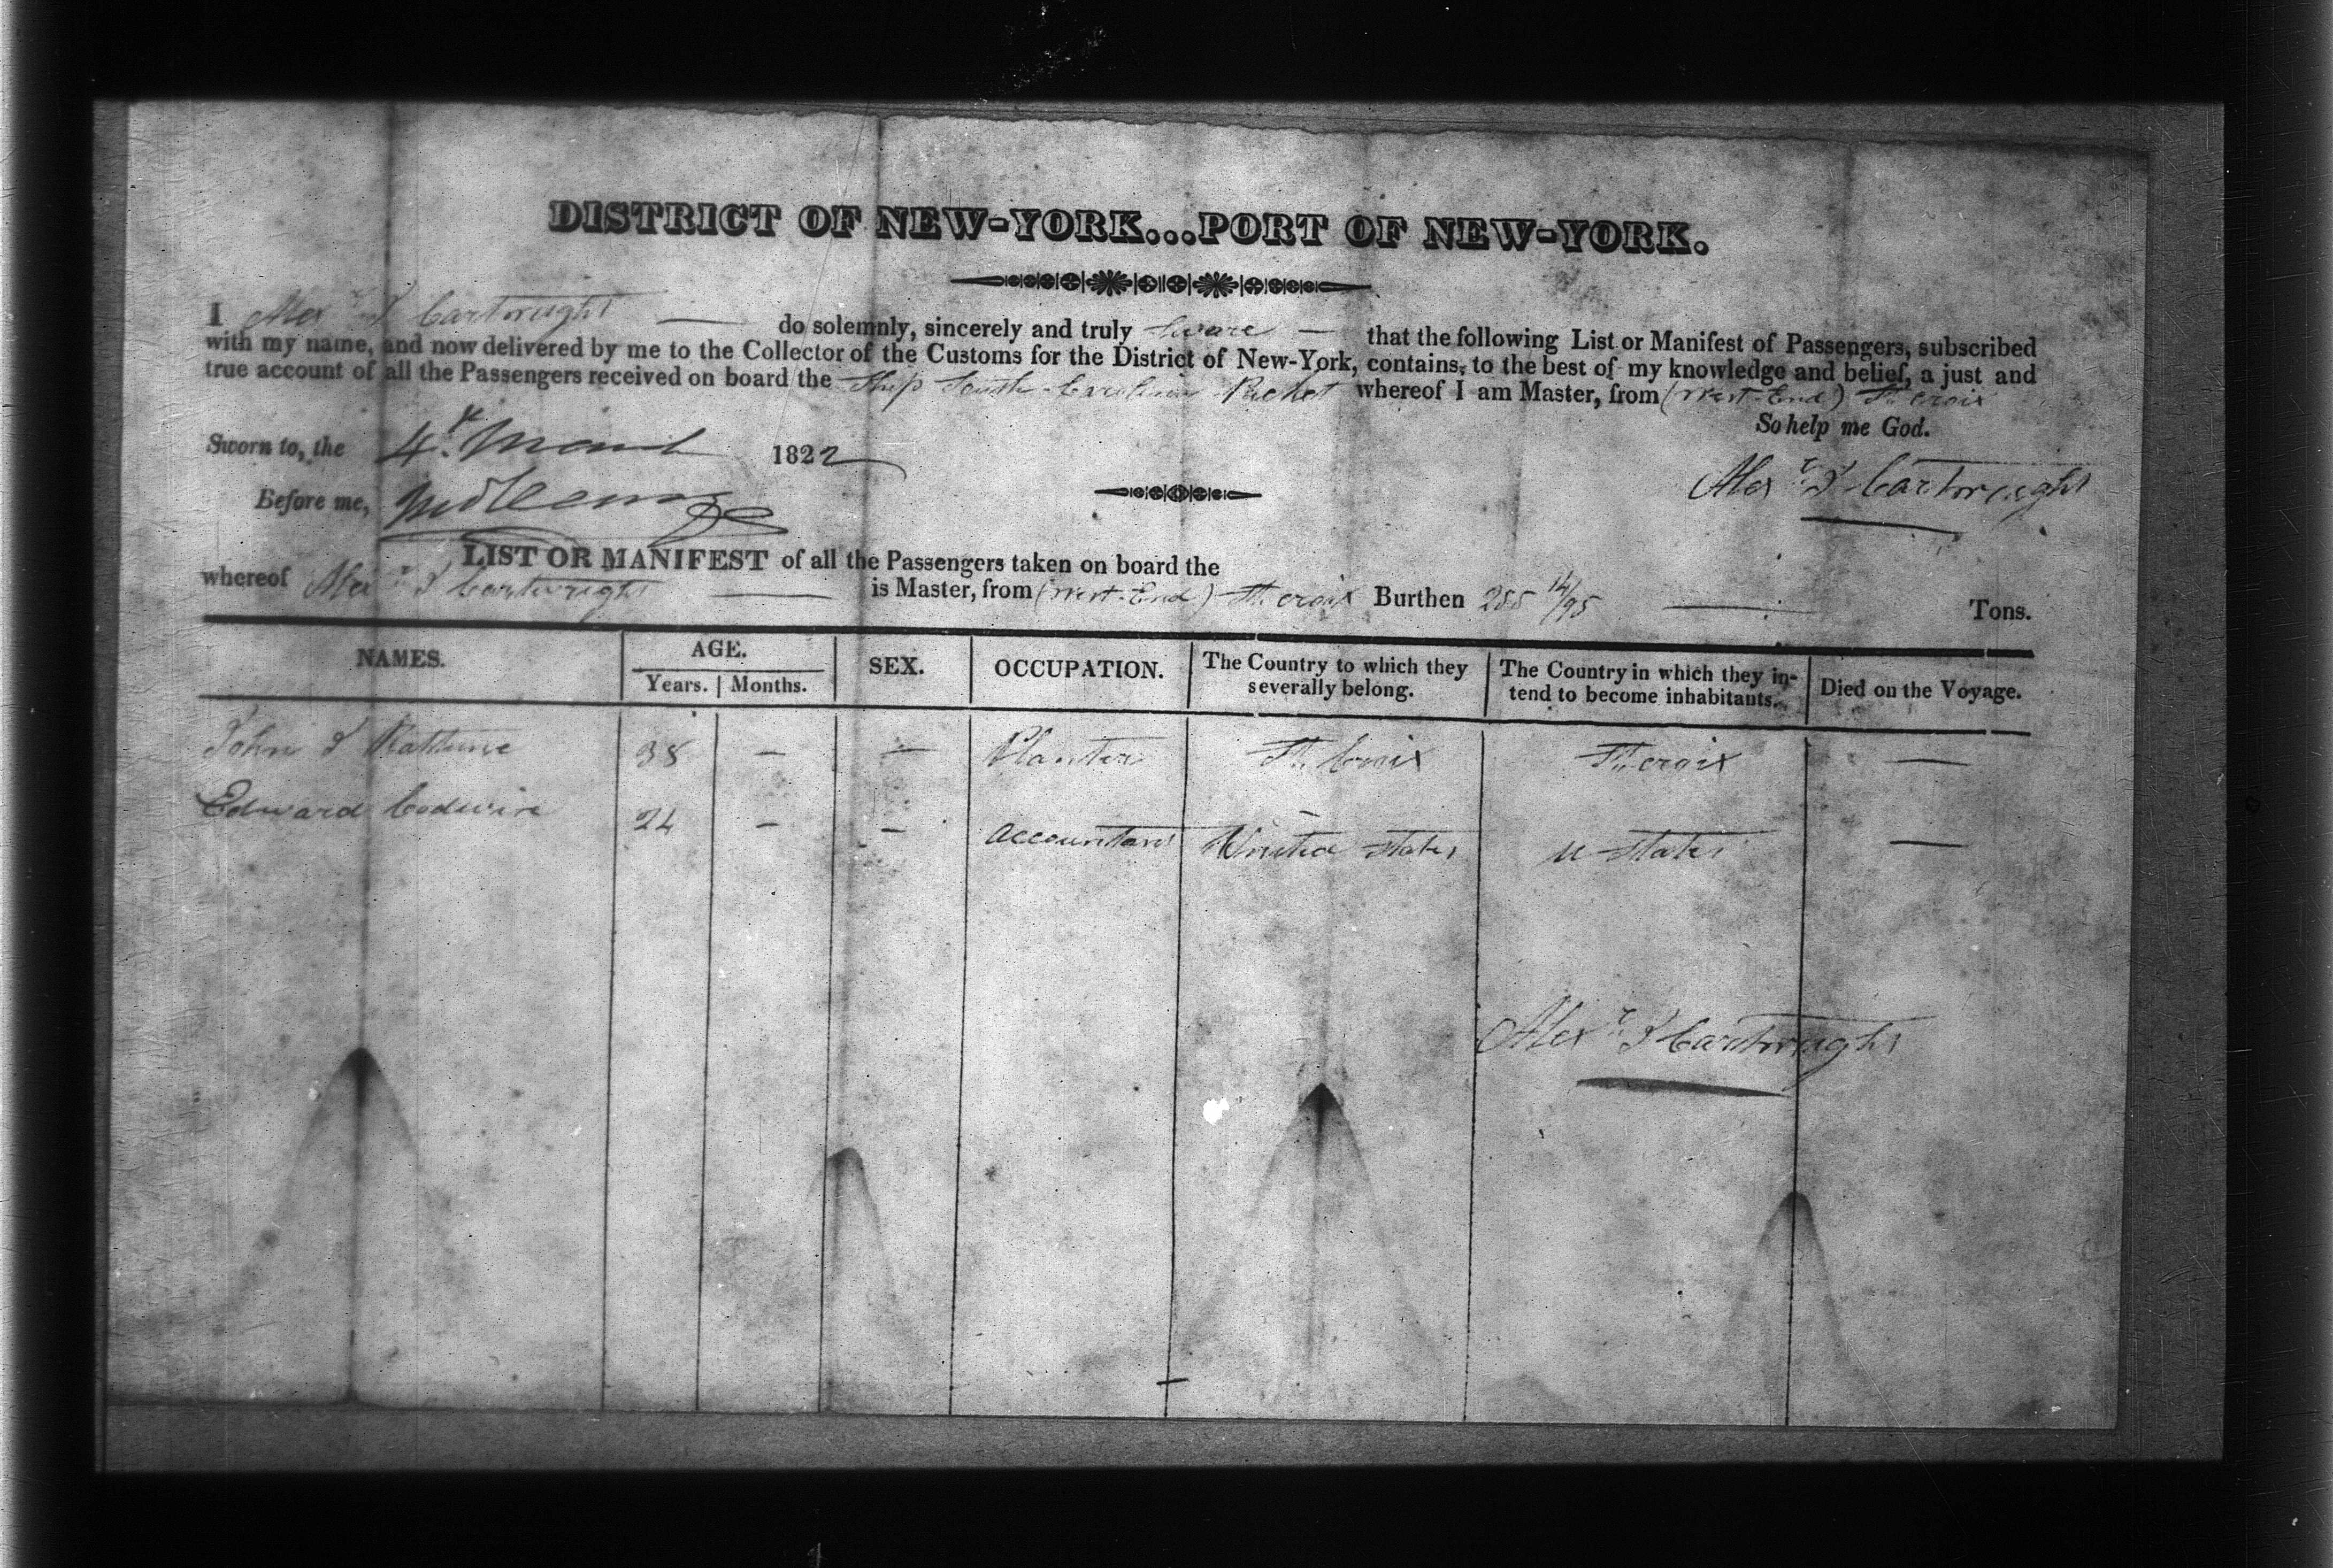 DISTRICT OF NEW-YORK...PORT OF NEW-YORK.
I Alexr I Cartwright do solemnly, sincerely and truly Sware — that the following List or Manifest of Passengers, subscribed
with my name, and now delivered by me to the Collector of the Customs for the District of New-York, contains, to the best of my knowledge and belief, a just and
true account of all the Passengers received on board the Ship South Carolina Packet whereof I am Master, from (West-End) St. Croix
So help me God.
Sworn to, the 4th March 1822
Alexr I Cartwright
Before me,
LIST OR MANIFEST of all the Passengers taken on board the
whereof Alexr I Cartwright — is Master, from (West-End) St. Croix Burthen 288 14/95 — Tons.
NAMES. AGE. SEX. OCCUPATION. The Country to which they severally belong. The Country in which they intend to become inhabitants. Died on the Voyage.
Years. Months.
John I 38 — — Planter St. Croix St. Croix —
Edward Codwise 24 — — Accountant United States U States —
Alexr I Cartwright